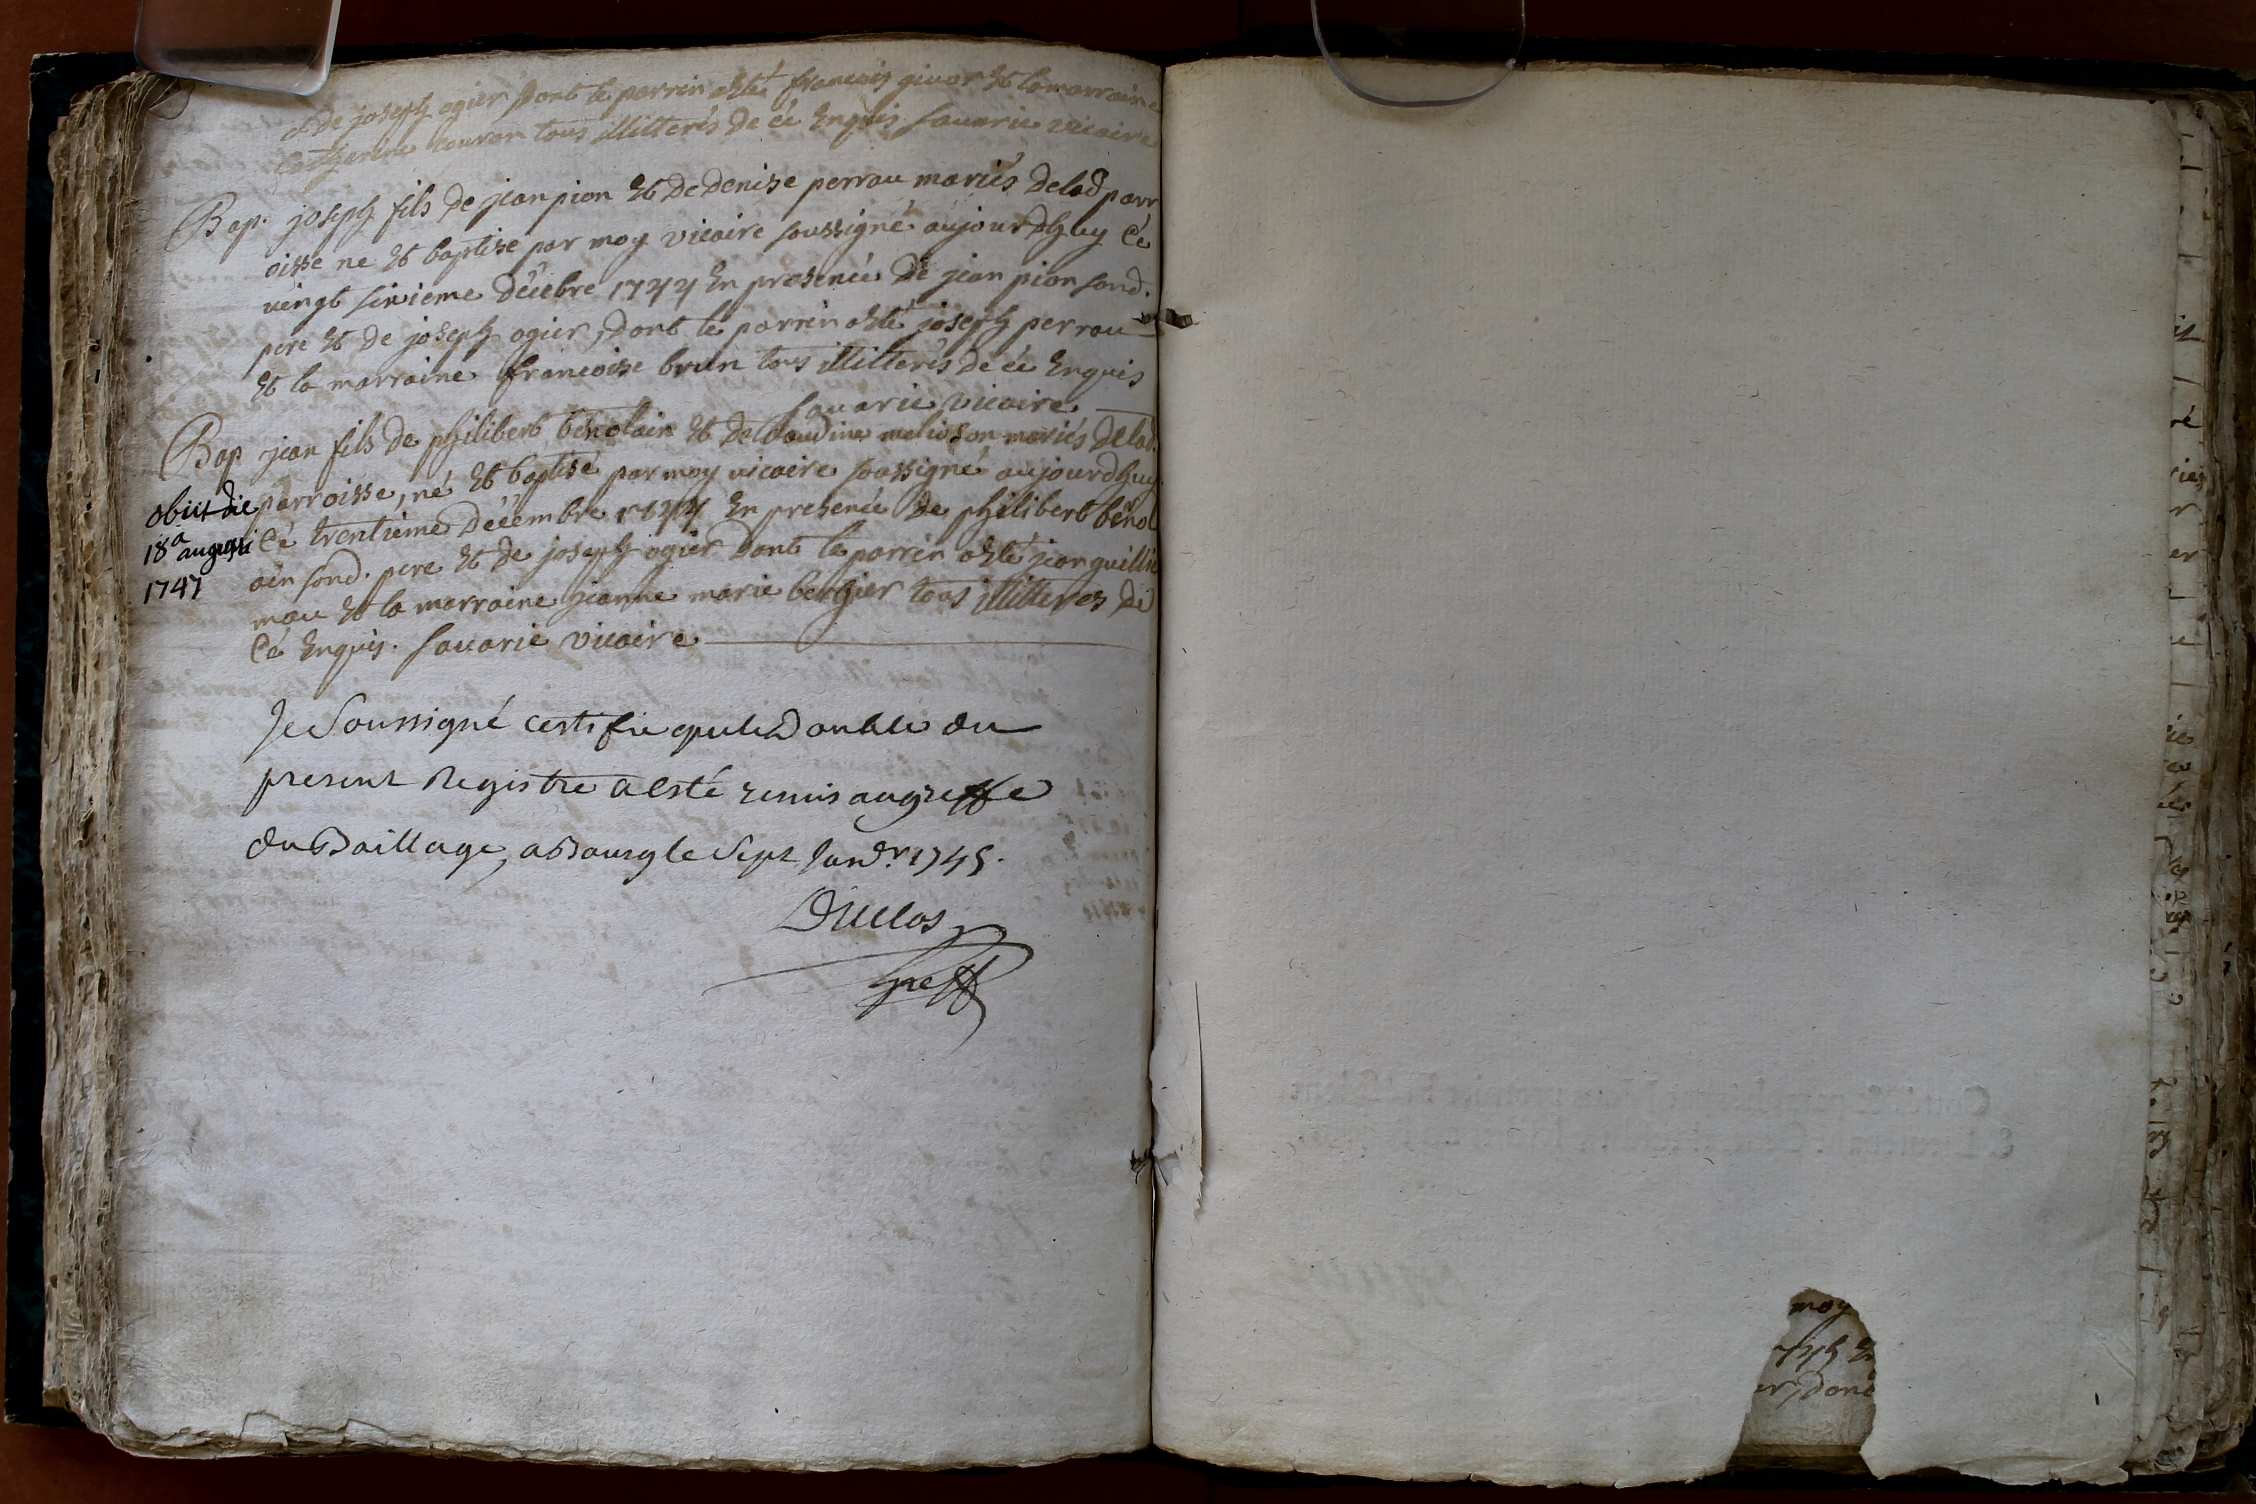 & de joseph ogier dont le parrin a Eté francois givor Et la marraine
Catherine touron tous illitterés de cé Enquis. Savarie vicaire
Bap. joseph fils de jean pion Et de denise perrau mariés de lad. parr
oisse ne Et baptise par moy vicaire soussigné aujourdhuy cé
vingt sixieme décebre 1744 En presence de jean pion sond.
pere Et de joseph ogier, dont le parrin a Eté joseph perrau
Et la marraine francoise brun tous illitterés de cé Enquis
Savarie vicaire
Bap jean fils de philibert benolain Et de Claudine mélison mariés de lad.
parroisse, né Et baptisé par moy vicaire soussigné aujourdhuy
cé trentième décembre 1744 En presence de philibert bénol
ain sond. pere Et de joseph ogier dont le parrin a Eté jean guille
mau Et la marraine jeanne marie bergier tous illitteres de
Cé Enquis. Savarie vicaire
obiit die
18a augusti
1747
Je Soussigné certifie que le Double du
present Registre a esté remis au greffe
du Baillage, a Bourg le Sept Janvr. 1745.
Duclos
Greff
moy
er, dont